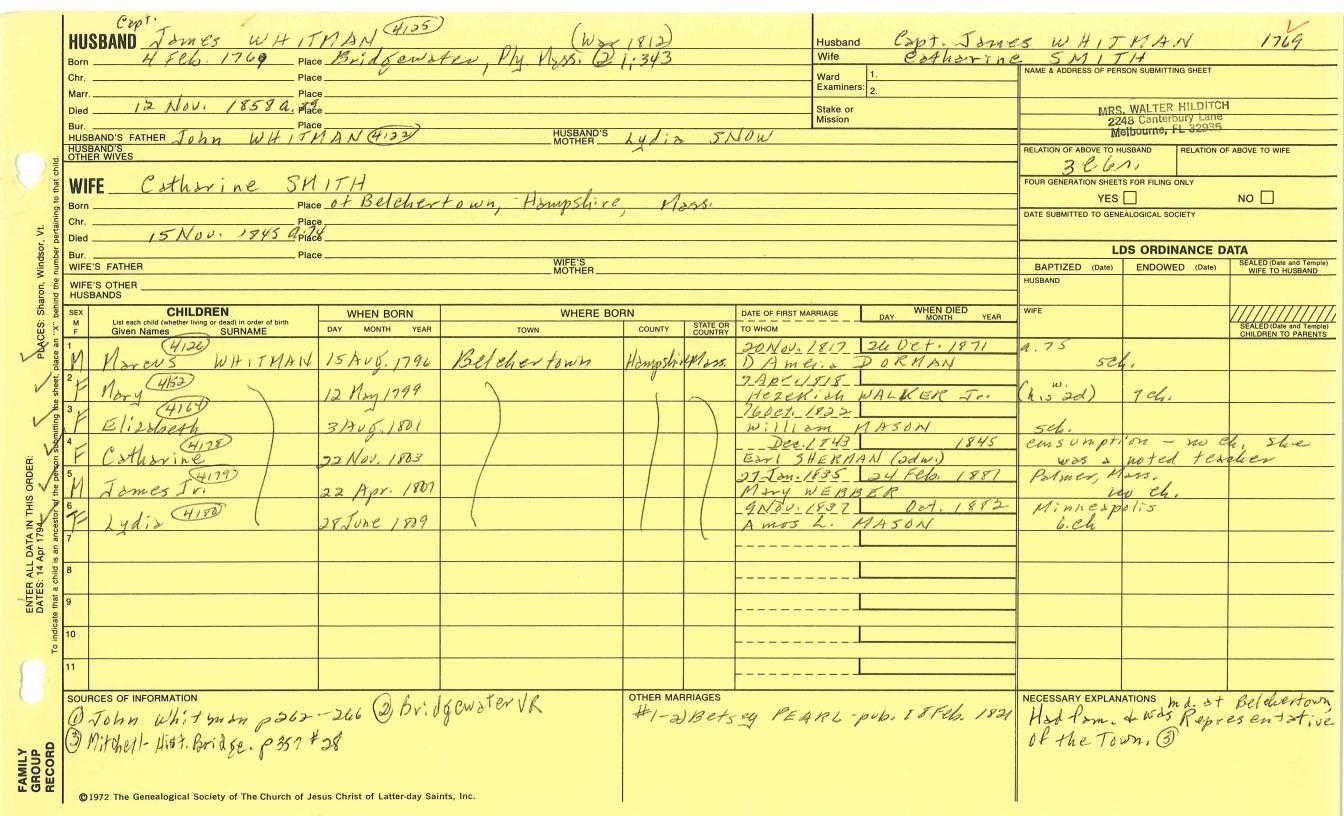 Capt.
HUSBAND James WHITMAN 4125 (War 1812)
Born 4 Feb. 1769 Place Bridgewater, Ply Mass. ② 1:343
Chr. Place
Marr. Place
Died 12 Nov. 1858 a. 89 Place
Bur. Place
HUSBAND'S FATHER John WHITMAN 4122 HUSBAND'S MOTHER Lydia SNOW
HUSBAND'S OTHER WIVES
WIFE Catharine SMITH
Born Place of Belchertown, Hampshire, Mass.
Chr. Place
Died 15 Nov. 1845 a. 74 Place
Bur. Place
WIFE'S FATHER WIFE'S MOTHER
WIFE'S OTHER HUSBANDS
Husband Capt. James WHITMAN 1769
Wife Catharine SMITH
Ward Examiners: 1.
2.
Stake or Mission
NAME & ADDRESS OF PERSON SUBMITTING SHEET
MRS. WALTER HILDITCH
2248 Canterbury Lane
Melbourne, FL 32935
RELATION OF ABOVE TO HUSBAND RELATION OF ABOVE TO WIFE
FOUR GENERATION SHEETS FOR FILING ONLY
YES NO
DATE SUBMITTED TO GENEALOGICAL SOCIETY
LDS ORDINANCE DATA
BAPTIZED (Date) ENDOWED (Date) SEALED (Date and Temple) WIFE TO HUSBAND
HUSBAND
WIFE
SEALED (Date and Temple) CHILDREN TO PARENTS
SEX M F CHILDREN WHEN BORN WHERE BORN DATE OF FIRST MARRIAGE WHEN DIED
List each child (whether living or dead) in order of birth
Given Names SURNAME DAY MONTH YEAR TOWN COUNTY STATE OR COUNTRY TO WHOM DAY MONTH YEAR
1 4126 20 Nov. 1817 26 Oct. 1871 a. 75
M Marcus WHITMAN 15 Aug. 1796 Belchertown Hampshire Mass. D Ameria DORMAN 5ch.
2 4152 7 Apr. 1818
F Mary 12 May 1799 Hezekiah WALKER Jr. (his 2d) w. 9 ch.
3 4164 16 Oct. 1822
F Elizabeth 3 Aug. 1801 William MASON 5ch.
4 4178 Dec. 1843 1845 consumption - no ch, she
F Catharine 22 Nov. 1803 Earl SHERMAN (adw.) was a noted teacher
5 4179 27 Jan. 1835 24 Feb. 1881 Palmer, Mass.
M James Jr. 22 Apr. 1807 Mary WEBBER no ch.
6 4180 9 Nov. 1837 Oct. 1882 Minneapolis
F Lydia 28 June 1809 Amos L. MASON 6 ch
7
8
9
10
11
SOURCES OF INFORMATION
① John Whitman p262-266 ② Bridgewater VR
③ Mitchell - Hist. Bridge. p357 #28
OTHER MARRIAGES
#1-2) Betsey PEARL - pub. 18 Feb. 1821
NECESSARY EXPLANATIONS md. at Belchertown,
Had fam. & was Representative
of the Town. ③
©1972 The Genealogical Society of The Church of Jesus Christ of Latter-day Saints, Inc.
FAMILY GROUP RECORD
ENTER ALL DATA IN THIS ORDER:
DATES: 14 Apr 1794 PLACES: Sharon, Windsor, Vt.
To indicate that a child is an ancestor of the person submitting the sheet, place an "X" behind the number pertaining to that child.